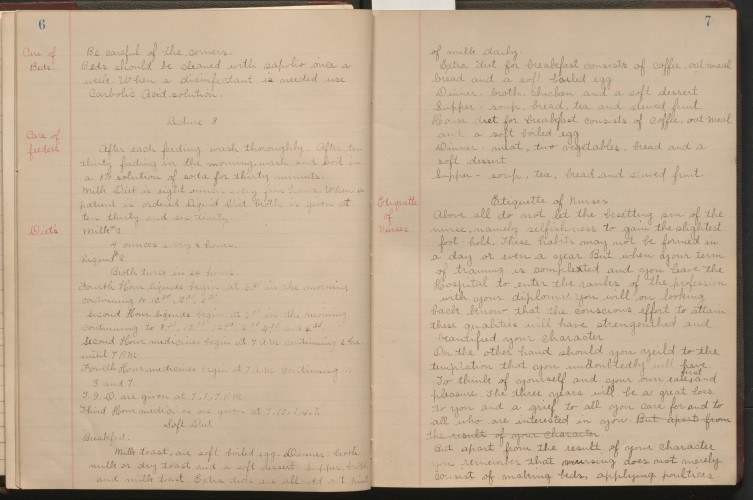 6
Care of Beds
Be careful of the corners.
Beds should be cleaned with sapolio once a
week. When a disinfectant is needed use
Carbolic Acid solution.
Lecture 3
Care of feeders
After each feeding wash thoroughly. After ten
thirty feeding in the morning, wash and boil in
a 1% solution of soda for thirty minutes.
Milk Diet is eight ounces every four hours. When a
patient is ordered Liquid Diet broth is given at
ten thirty and six thirty.
Diets
Milk
4 ounces every 2 hours.
Liquid
Broth twice in 24 hours.
Fourth Hour liquids begin at in the morning
continuing to
Second Hour liquids begin at in the morning
continuing to
Second Hour medicines begin at 7 A.M. continuing
until 7 P.M.
Fourth Hour medicines begin at 7 A.M. continuing
3 and 7.
T.I.D. are given at
Third Hour medicines are given at
Soft Diet
Breakfast.
Milk toast, one soft boiled egg. Dinner - broth
milk or dry toast and a soft dessert. Supper,
and milk toast. Extra diets are all
7
of milk daily.
Extra diet for breakfast consists of coffee, oat meal
bread and a soft boiled egg
Dinner - broth, chicken and a soft dessert
Supper - soup, bread, tea and stewed fruit
House diet for breakfast consists of coffee, oat meal
and a soft boiled egg
Dinner - meat, two vegetables, bread and a
soft dessert
Supper - soup, tea, bread and stewed fruit
Etiquette of Nurses
Etiquette of Nurses
Above all do not let the besetting sin of the
nurse, namely selfishness to gain the slightest
foot-hold. These habits may not be formed in
a day or even a year. But when your term
of training is completed and you leave the
Hospital to enter the ranks of the profession
with your diploma you will on looking
back know that the conscious effort to attain
these qualities will have strengthened and
beautified your character.
On the other hand should you yeild to the
temptation that you undoubtedly will have
To think of yourself and your own ease first and
pleasure. The three years will be a great loss
to you and a grief to all you care for and to
all who are interested in you. But apart from
the result of your character.
But apart from the result of your character
you remember that nursing does not merely
consist of making beds, applying poultices